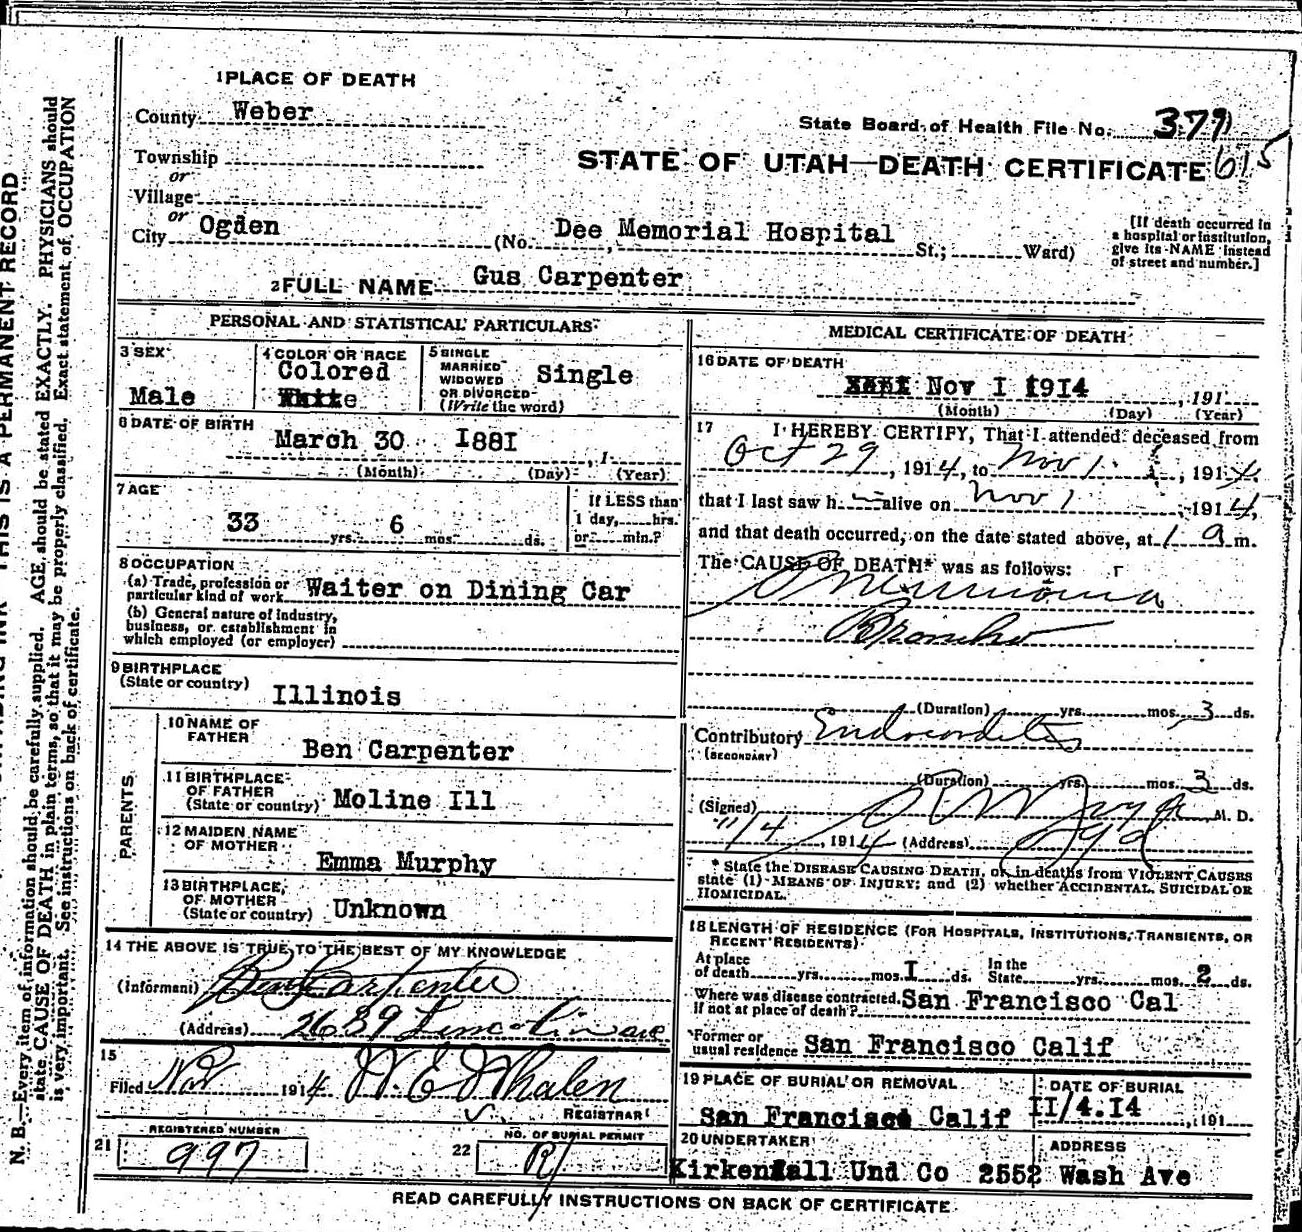 1 PLACE OF DEATH
County Weber
State Board of Health File No. 379
Township
or
STATE OF UTAH—DEATH CERTIFICATE 615
Village
or
City Ogden (No. Dee Memorial Hospital St.; Ward)
[If death occurred in
a hospital or institution,
give its NAME instead
of street and number.]
2 FULL NAME Gus Carpenter
PERSONAL AND STATISTICAL PARTICULARS
3 SEX
Male
4 COLOR OR RACE
Colored
White
5 SINGLE
MARRIED
WIDOWED
OR DIVORCED
(Write the word)
Single
6 DATE OF BIRTH
March 30 I88I , 1
(Month) (Day) (Year)
7 AGE
33 yrs. 6 mos. ds.
If LESS than
1 day, hrs.
or min.?
8 OCCUPATION
(a) Trade, profession or
particular kind of work Waiter on Dining Car
(b) General nature of industry,
business, or establishment in
which employed (or employer)
9 BIRTHPLACE
(State or country) Illinois
PARENTS
10 NAME OF
FATHER
Ben Carpenter
11 BIRTHPLACE
OF FATHER
(State or country) Moline Ill
12 MAIDEN NAME
OF MOTHER
Emma Murphy
13 BIRTHPLACE
OF MOTHER
(State or country) Unknown
14 THE ABOVE IS TRUE TO THE BEST OF MY KNOWLEDGE
(Informant) Ben Carpenter
(Address) 2639 Lincoln ave
15
Filed Nov 1914 W. E. Whalen
REGISTRAR
21 REGISTERED NUMBER
997
22 NO. OF BURIAL PERMIT
MEDICAL CERTIFICATE OF DEATH
16 DATE OF DEATH
Nov I I9I4 , 191
(Month) (Day) (Year)
17 I HEREBY CERTIFY, That I attended deceased from
Oct 29, 1914, to Nov 1, 1914,
that I last saw h alive on Nov 1, 1914,
and that death occurred, on the date stated above, at 1 a m.
The CAUSE OF DEATH* was as follows:
Pneumonia
Broncho
(Duration) yrs. mos. 3 ds.
Contributory Endocarditis
(SECONDARY)
(Duration) yrs. mos. 3 ds.
(Signed) M. D.
11/4, 1914 (Address) Ogd
* State the DISEASE CAUSING DEATH, or, in deaths from VIOLENT CAUSES
state (1) MEANS OF INJURY; and (2) whether ACCIDENTAL, SUICIDAL OR
HOMICIDAL.
18 LENGTH OF RESIDENCE (FOR HOSPITALS, INSTITUTIONS, TRANSIENTS, OR
RECENT RESIDENTS)
At place
of death yrs. mos. I ds. In the
State yrs. mos. 2 ds.
Where was disease contracted,
if not at place of death? San Francisco Cal
Former or
usual residence San Francisco Calif
19 PLACE OF BURIAL OR REMOVAL
San Francisco Calif
DATE OF BURIAL
II/4.I4 , 191
20 UNDERTAKER
Kirkendall Und Co
ADDRESS
2552 Wash Ave
READ CAREFULLY INSTRUCTIONS ON BACK OF CERTIFICATE
THIS IS A PERMANENT RECORD
N. B.—Every item of information should be carefully supplied. AGE should be stated EXACTLY. PHYSICIANS should
state CAUSE OF DEATH in plain terms, so that it may be properly classified. Exact statement of OCCUPATION
is very important. See instructions on back of certificate.